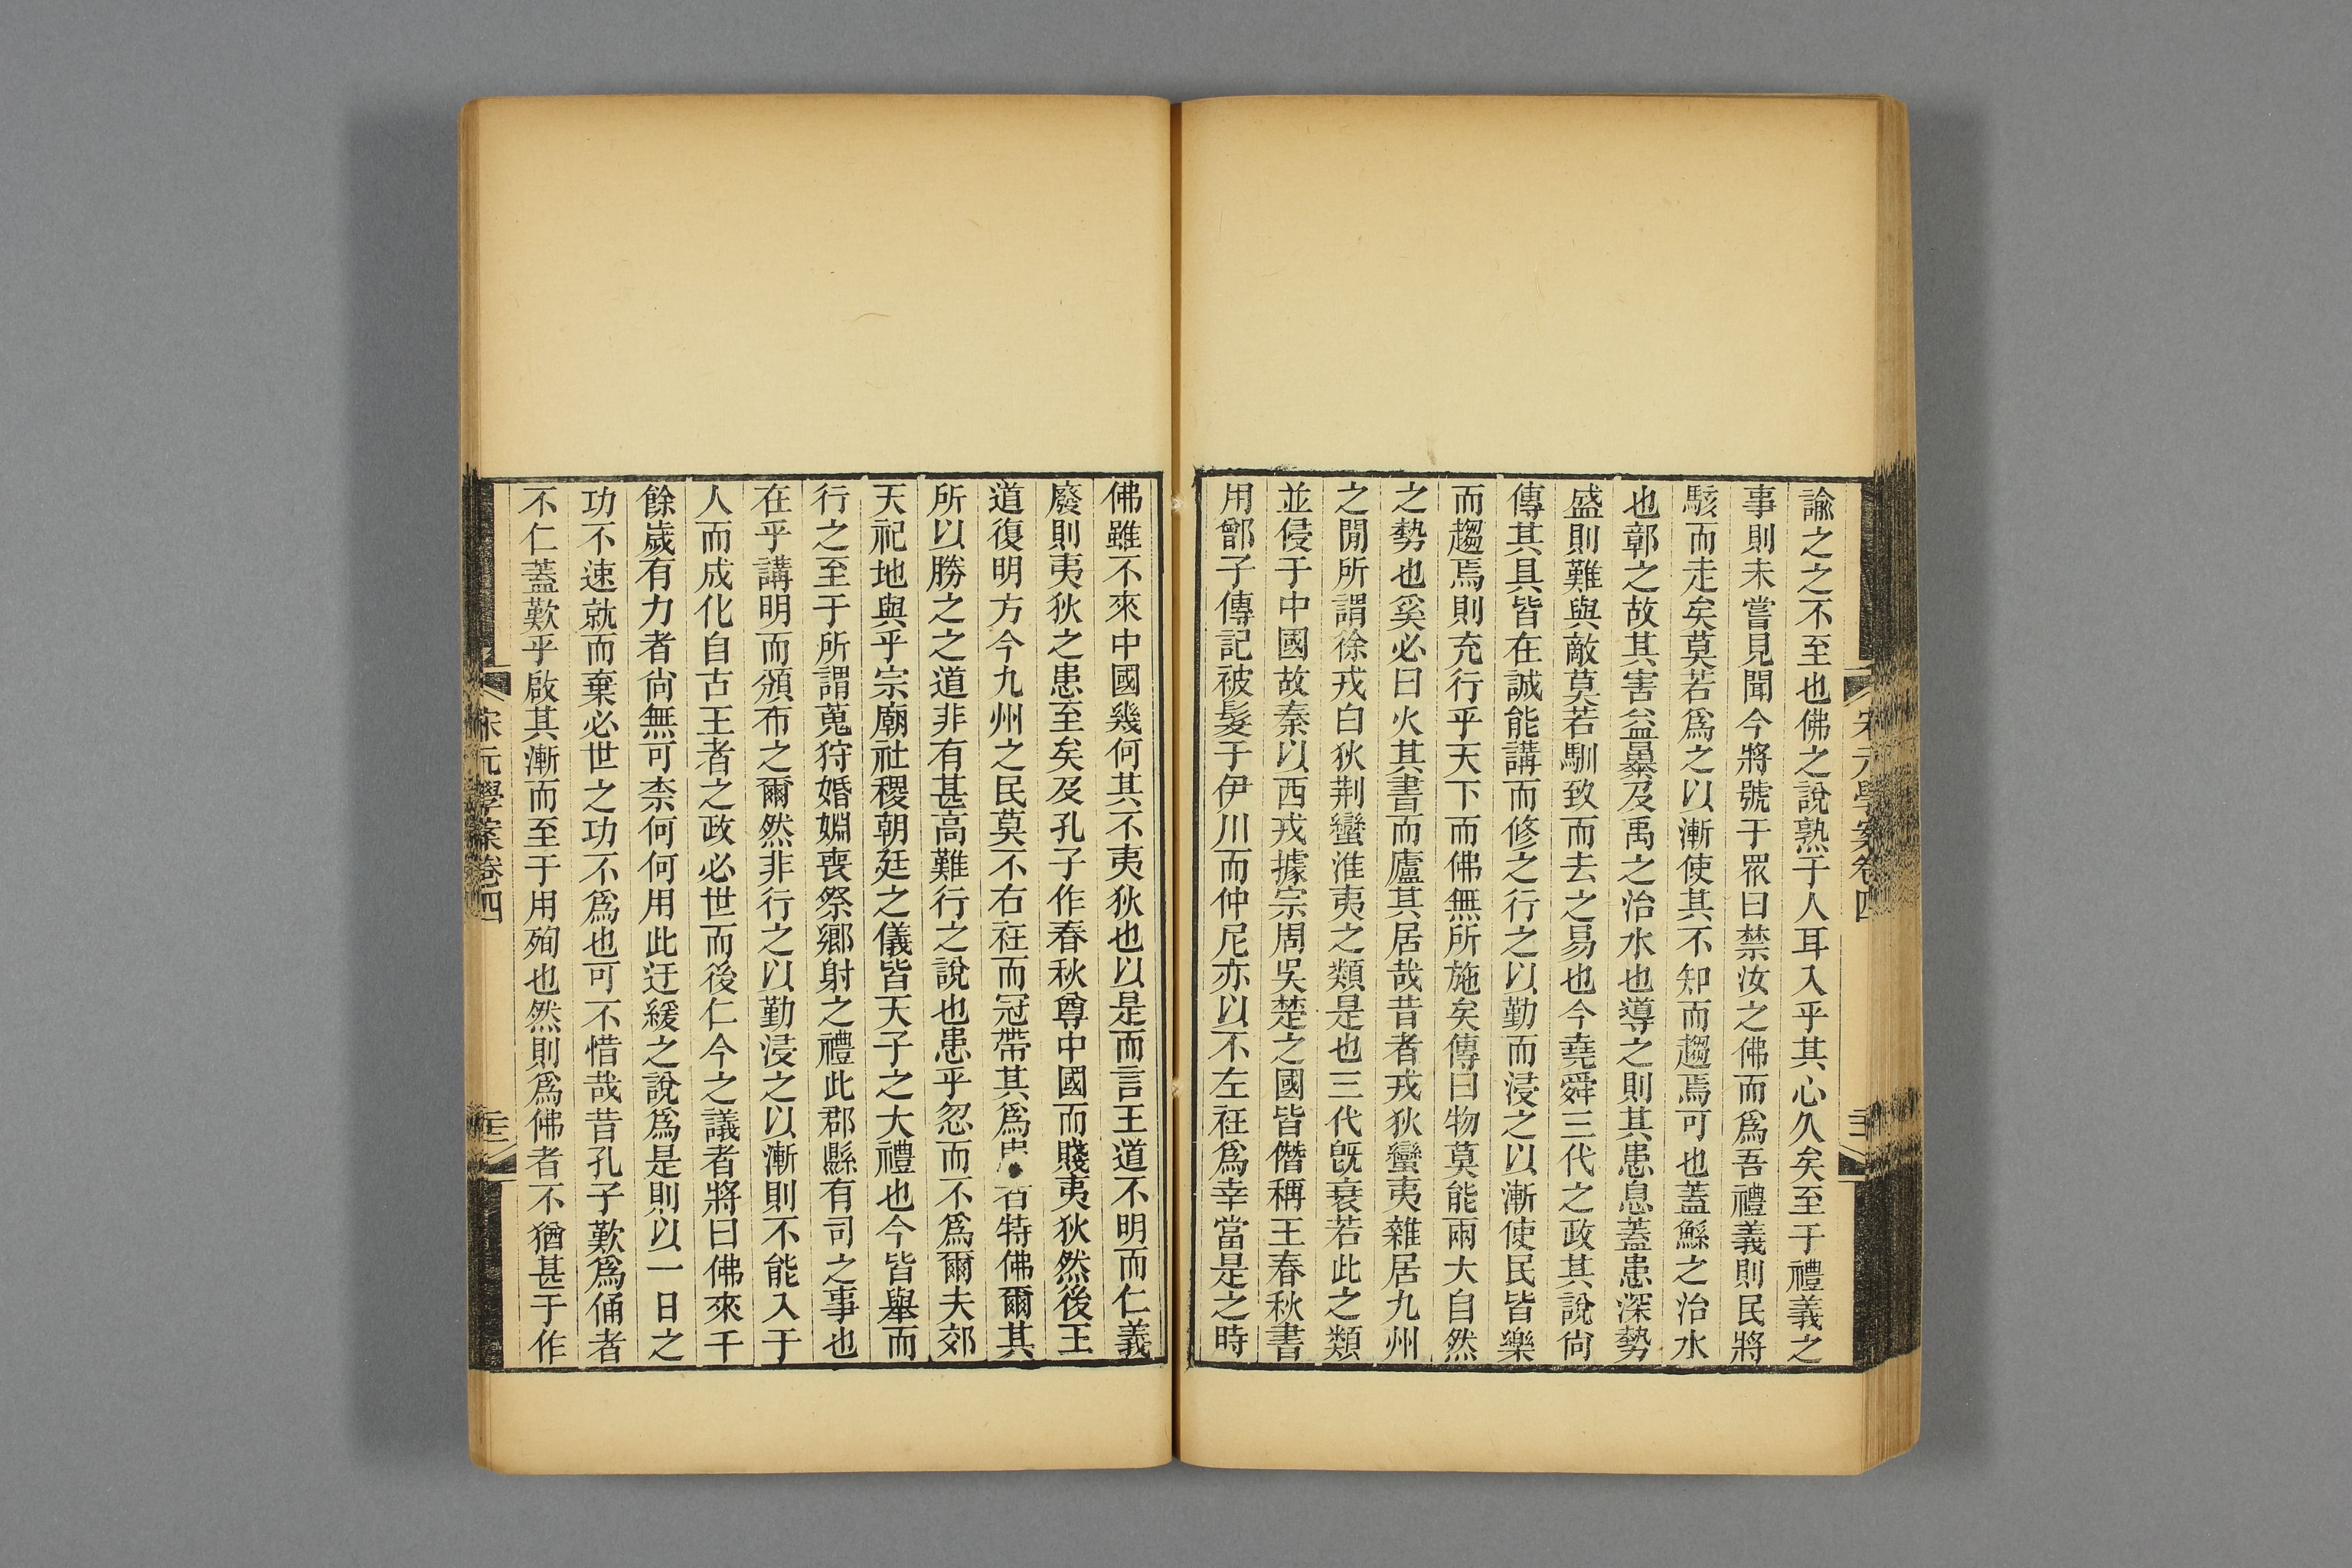 諭之之不至也佛之說熟于人耳入乎其心久矣至于禮義之
事則未嘗見聞今將號于眾曰禁汝之佛而爲吾禮義則民將
駭而走矣莫若爲之以漸使其不知而趨焉可也蓋鯀之治水
也鄣之故其害益暴及禹之治水也導之則其患息蓋患深勢
盛則難與敵莫若馴致而去之易也今堯舜三代之政其說尙
傳其具皆在誠能講而修之行之以勤而浸之以漸使民皆樂
而趨焉則充行乎天下而佛無所施矣傳曰物莫能兩大自然
之勢也奚必曰火其書而廬其居哉昔者戎狄蠻夷雜居九州
之閒所謂徐戎白狄荆蠻淮夷之類是也三代旣衰若此之類
並侵于中國故秦以西戎據宗周吳楚之國皆僭稱王春秋書
用鄫子傳記被髮于伊川而仲尼亦以不左衽爲幸當是之時
宋元學案卷四
佛雖不來中國幾何其不夷狄也以是而言王道不明而仁義
廢則夷狄之患至矣及孔子作春秋尊中國而賤夷狄然後王
道復明方今九州之民莫不右衽而冠帶其爲患者特佛爾其
所以勝之之道非有甚高難行之說也患乎忽而不爲爾夫郊
天祀地與乎宗廟社稷朝廷之儀皆天子之大禮也今皆舉而
行之至于所謂蒐狩婚姻喪祭鄉射之禮此郡縣有司之事也
在乎講明而頒布之爾然非行之以勤浸之以漸則不能入于
人而成化自古王者之政必世而後仁今之議者將曰佛來千
餘歲有力者尙無可柰何何用此迂緩之說爲是則以一日之
功不速就而棄必世之功不爲也可不惜哉昔孔子歎爲俑者
不仁蓋歎乎啟其漸而至于用殉也然則爲佛者不猶甚于作
宋元學案卷四